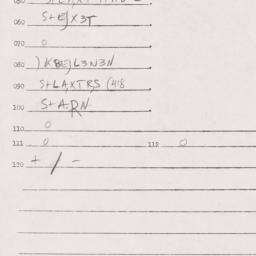 060 S+EJX3T
070 0
080 )KBEJL3N3N
090 S+LAXTRS (418
100 S+A.RN
110 0
111 0 112 0
120 + / -